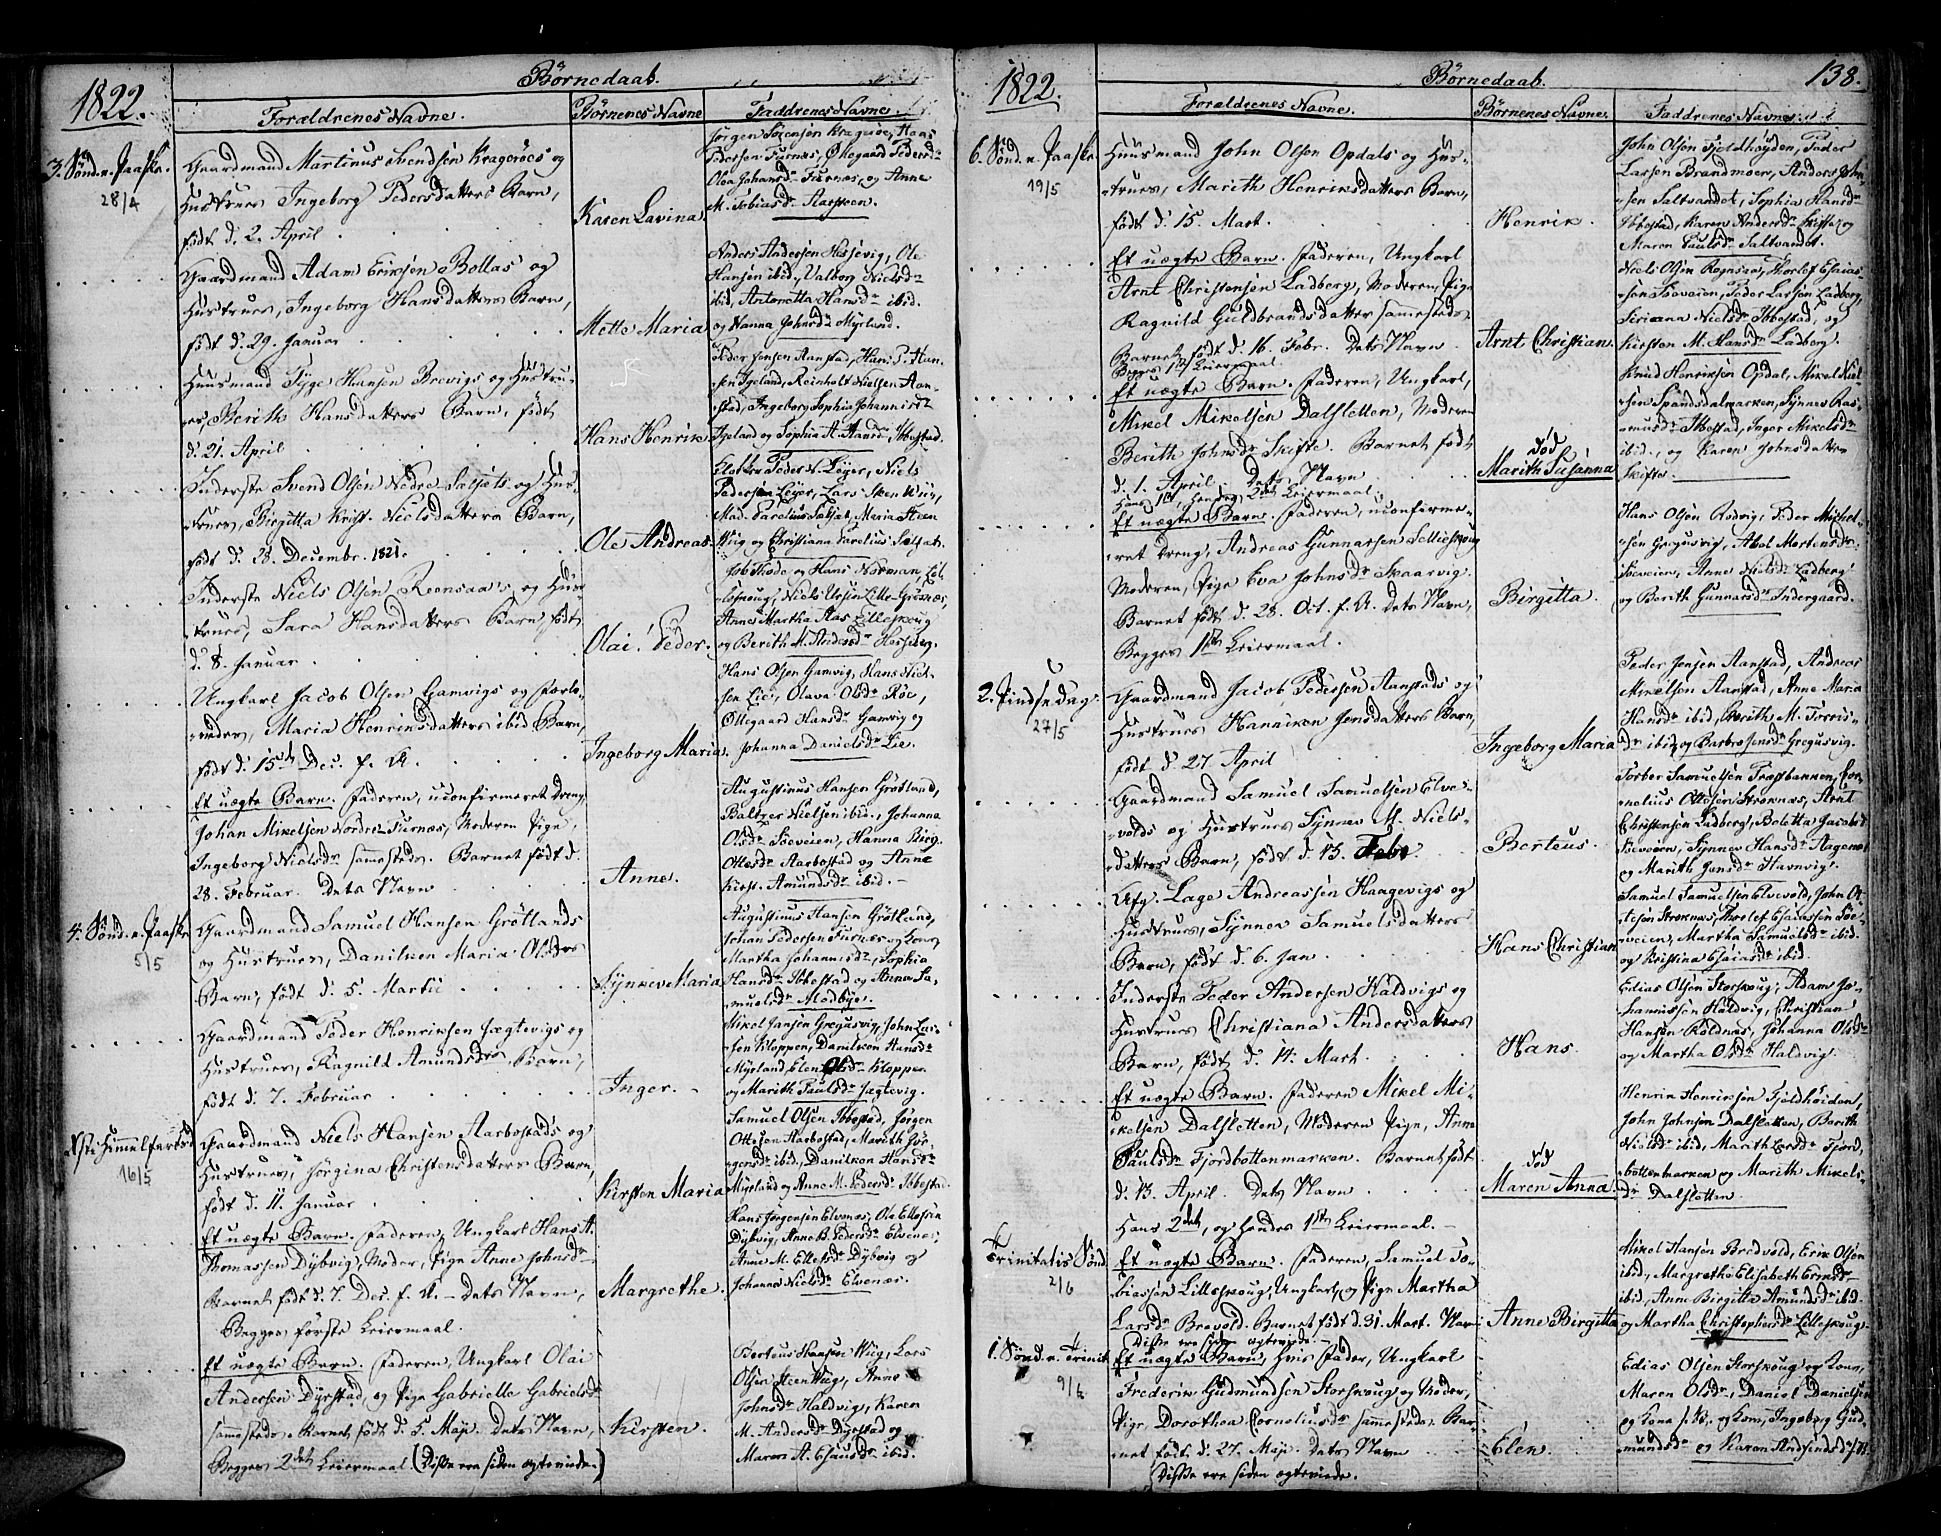 1822.
Børnedaab.
Forældrenes Navne.
Børnenes Navne
Faddrenes Navne
3. Sönd. n. Paaske.
28/4
Gaardmand Martinus Svendsen Kragerøes og
Hustrues Ingeborg Pedersdatters Barn,
født d. 2. April
Karen Lavina.
Jørgen Sörensen Kragerøe, Haas
Pedersen Furnæs, Økegaard Pedersdr
Olea Johansdr Furnæs, og Anne
M. Tobiasdr Aarsteen.
Gaardmand Adam Eriksen Bollas og
Hustrues, Ingeborg Hansdatters Barn,
født d. 29. Januar
Mette Maria
Anders Andersen Hessevig, Ole
Hansen ibid, Valborg Nielsdr
ibid, Antonetta Hansdr ibid.
og Nanna Johnsdr Myrland.
Huusmand Tyge Hansen Brevigs og Hustru-
es, Berith Hansdatters Barn, født
d. 21. April
Hans Henrik.
Peder Jensen Aanstad, Hans P. Han-
sen Igeland, Reinholt Nielsen Aan-
stad, Ingeborg Sophia Johannisdr
Igeland og Sophia A. Hansdr, Ibbestad.
Inderste Svend Olsen Nedre-Salsæts og Hus-
trues, Birgitta Krist. Nielsdatters Barn,
født d. 28. Decembr. 1821.
Ole Andreas.
Klokker Peder N. Leyer, Niels
Pedersen Leyer, Lars Steen Wiig,
Mad. Karelius Salsæt, Maria Steen
Wiig og Christiana Karelius Salsæt.
Inderste Niels Olsen Reensaa's og Hus-
trues, Sara Hansdatters Barn født
d. 8. Januar
Olai Peder.
Job Thode og Hans Norman, Lil-
leskoug, Niels Olsen Lille-Grasnæs,
Annes Martha Aas Lilleskoug
og Berith M. Andersdr Hessevig.
Ungkarl Jacob Olsen Gamvigs og Fæste-
möes, Maria Henriksdatters ibid Barn,
født d. 15de Dec. f. A.
Ingeborg Maria.
Hans Olsen Gamvig, Hans Niel-
sen Lie, Olava Olsdr Röe,
Øllegaard Hansdr Gamvig og
Johanna Danielsdr Lie.
Et uægte Barn. Faderen, uconfirmeret Dreng,
Johan Mikelsen Nordre-Furnæs, Moderen Pige,
Ingeborg Nielsdr sammesteds. Barnet født d.
28. Februar. Dets Navn
Anne.
Augustinus Hansen Grötland,
Baltzer Nielsen ibid., Johanna
Olsdr Söeveien, Hanna Birg.
Ottesdr Aarbostad og Anne
Kirst. Amundsdr ibid.
4. Sönd. n. Paaske
5/5
Gaardmand Samuel Hansen Grötlands
og Hustrues, Daniken Maria Olsdrs
Barn, født d. 5. Martii
Synneve Maria
Augustinus Hansen Grötland,
Johan Pedersen Furnæs og Kone
Martha Johannisdr, Sophia
Hansdr Ibbestad og Anne Sa-
muelsdr Modbye.
Gaardmand Peder Henriksen Jægtevigs og
Hustrues, Ragnild Amundsdrs Barn,
født d. 7. Februar
Inger.
Mikel Jansen Gregusvig, John Lar-
sen Kloppen, Daniken Hansdr
Myrland, Elen Olsdr Kloppen
og Marith Paulsdr Jægtevig.
Christi Himmelfartsd
16/5
Gaardmand Niels Hansen Aarbostads og
Hustrues, Jörgina Christensdatters Barn,
født d. 11. Januar
Kirsten Maria
Samuel Olsen Ibbestad, Jørgen
Ottesen Aarbostad, Marith Jör-
gensdr ibid., Daniken Hansdr
Myrland og Anne M. Pedersdr Ibbestad.
Et uægte Barn. Faderen, Ungkarl Hans A.
Thomassen Dybvig, Moder, Pige Anne Johnsdr
Barnet født d. 7. Dec. f. A. – Dets Navn,
Begges første Leiermaal.
Margrethe.
Hans Jørgensen Elvenæs, Ole Ellefsen
Dybvig, Anne B. Pedersdr Elvenæs,
Anne M. Ellefsdr Dybvig og
Johanna Nielsdr Elvenæs.
Et uægte Barn. Faderen, Ungkarl Olai
Andersen Dyrstad, og Pige Gabrielle Gabrielsdr
sammesteds. Barnet, født d. 5. Maji. Dets Navn,
Begges 2det Leiermaal (Disse ere siden ægteviede.)
Kirsten.
Berteus Hansen Wiig, Lars
Olsen Steen Wiig, Anne
Johnsdr Haldvig, Karen
M. Andersdr Dyrstad og
Maren A. Esaiasdr ibid.
1822.
Børnedaab.
138.
Forældrenes Navne.
Børnenes Navne.
Faddrenes Navne.
6. Sønd. n. Paaske
19/5
Huusmand John Olsen Opdals og Hus-
trues, Marith Henriksdatters Barn,
født d. 15. Mart.
Henrik.
John Olsen Fjeldhöyden, Peder
Larsen Brandmoen, Anders John-
sen Saltvandet, Sophia Hansdr
Ibbestad, Karen Andersdr Skifte og
Maren Paulsdr Saltvandet.
Et uægte Barn. Faderen, Ungkarl
Arnt Christensen Ladberg, Moderen, Pige
Ragnild Guldbrandsdatter sammesteds.
Barnet født d. 16. Febr. Dets Navn
Begges 1ste Leiermaal.
Arnt Christian.
Niels Olsen Reensaa, Thorlef Esaias-
sen Söeveien, Peder Larsen Ladberg,
Siriana Nielsdr Ibbestad, og
Kirsten M. Hansdr Ladberg.
Et uægte Barn. Faderen, Ungkarl,
Mikel Mikelsen Dalsletten, Moderen
Berith Johnsdr Skifte. Barnet født
d. 1. April. Dets Navn
Hans 1ste, hendes 2det Leiermaal.
død
Marith Susanna
Knud Henriksen Opdal, Mikel Niel-
sen Spandsdalmarken, Synnev Ras-
musdr Ibbestad, Inger Mikelsdr
ibid., og Karen Johnsdatter
Skifte.
Et uægte Barn. Faderen, uconfirme-
ret Dreng, Andreas Gunnarsen Lilleskoug
Moderen, Pige Eva Johnsdr Skaarvig.
Barnet født d. 28. Oct. f. A. Dets Navn,
Begges 1ste Leiermaal.
Birgitta.
Hans Olsen Rodvig, Peder Mickel-
sen Gregusvig, Abel Mortensdr
Söeveien, Anne Nielsdr Ladberg
og Berith Gunnarsdr Indergaard.
2. Pindsedag.
27/5
Gaardmand Jacob Pedersen Aanstads og
Hustrues Hanniken Jensdatters Barn,
født d. 27. April
Ingeborg Maria
Peder Jensen Aanstad, Andreas
Mikelsen Aanstad, Anne Maria
Hansdr ibid, Berith M. Torris-
dr ibid, og Barbro Jensdr Gregusvig.
Gaardmand Samuel Samuelsen Elve-
volds og Hustrues Synnev M. Niels-
datters Barn, født d. 13. Febr.
Berteus.
Torber Samuelsen Træsbakken, Cor-
nelius Ottesen Stroknæs, Arnt
Christensen Ladberg, Boletta Jacobsdr
Söeveien, Synnev Hansdr Aagenæs
og Marith Jensdr Havnvig.
Afg. Lage Andreassen Haagevigs og
Hustrues, Synnev Samuelsdatters
Barn, født d. 6. Jan.
Hans Christian
Samuel Samuelsen Elvevold, John Ot-
tesen Stroknæs, Thorlef Esaiassen Söe-
veien, Martha Samuelsdr ibid.
og Kristina Esaiasdr ibid.
Inderste Peder Andersen Haldvigs og
Hustrues Christiana Andersdatters
Barn, født d. 14. Mart.
Hans.
Edias Olsen Storskoug, Adam Jo-
hannissen Haldvig, Christian
Hansen Roldnæs, Johanna Olsdr
og Martha Olsdr Haldvig.
Et uægte Barn. Faderen Mikel Mi-
kelsen Dalsletten, Moderen Pige, Anne
Paulsdr Fjordbottenmarken. Barnet født
d. 13. April. Dets Navn
Hans 2det, og hendes 1ste Leiermaal.
død
Maren Anna.
Henrik Henriksen Fjeldhöiden,
John Johnsen Dalsletten, Berith
Nielsdr ibid, Marith Larsdr Fjord-
bottenmarken og Marith Mikels-
dr Dalsletten.
Trinitatis Sønd
2/6
Et uægte Barn. Faderen, Samuel To-
biassen Lilleskoug, Ungkarl, og Pige Martha
Larsdr Brevold. Barnet født d. 31. Mart. Navn:
Disse ere siden ægteviede.
Anne Birgitta
Mikel Hansen Bredvold, Erik Olsen
ibid, Margrethe Elisabeth Ernsdr
ibid, Anne Birgitta Amundsdr ibid.
og Martha Christophersdr Lilleskoug.
1. Sønd. n. Trinit.
9/6
Et uægte Barn, hvis Fader, Ungkarl
Frederik Gudmundsen Storskoug og Moder,
Pige Dorothea Corneliusdr sammesteds. Bar-
net født d. 27. Maji. Dets Navn
Disse ere siden ægteviede.
Elen.
Edias Olsen Storskoug og Kone,
Maren Olsdr, Daniel Danielsen
og Kone s. st. og Kone, Ingeborg Gud-
mundsdr og Karen